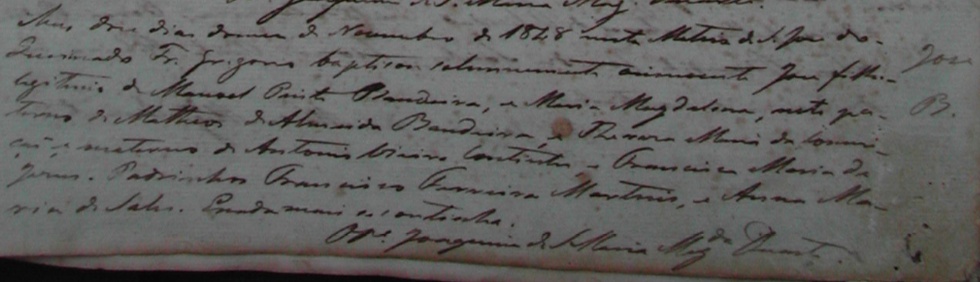 Joaquim de S. Maria Mag. Duarte.
Aos dous dias do mes de Novembro de 1848 nesta Matriz de S. Jose do
Fr. Gregorio baptisou solemnemente innocente Jose filho
legitimo de Manoel Pinto Bandeira, e Maria Magdalena, neto pa-
terno de Matheos de Almeida Bandeira, e Thereza Maria da Concei-
ção, e materno de Antonio Vieira e Francisca Maria de
Jesus. Padrinhos Francisco Ferreira Martins, e Anna Ma-
ria de Sales. E nada mais se continha.
O Pe. Joaquim de S. Maria Magda Duarte.
Jose
B.